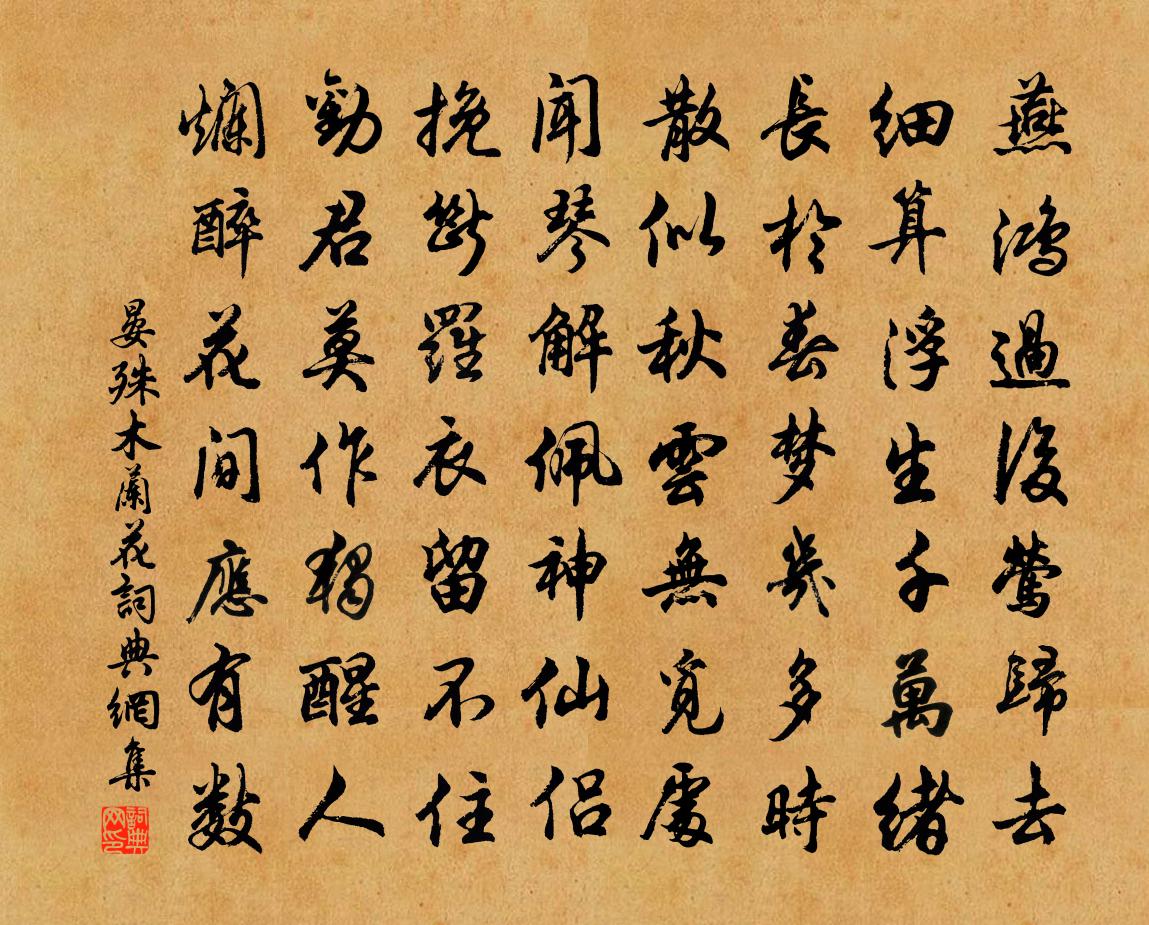 燕鴻過後鶯歸去
細算浮生千萬緒
長於春梦幾多時
散似秋雲無覓處
聞琴解佩神仙侶
挽斷羅衣留不住
勸君莫作獨醒人
爛醉花間應有數
晏殊木蘭花詞典網集
詞典网印